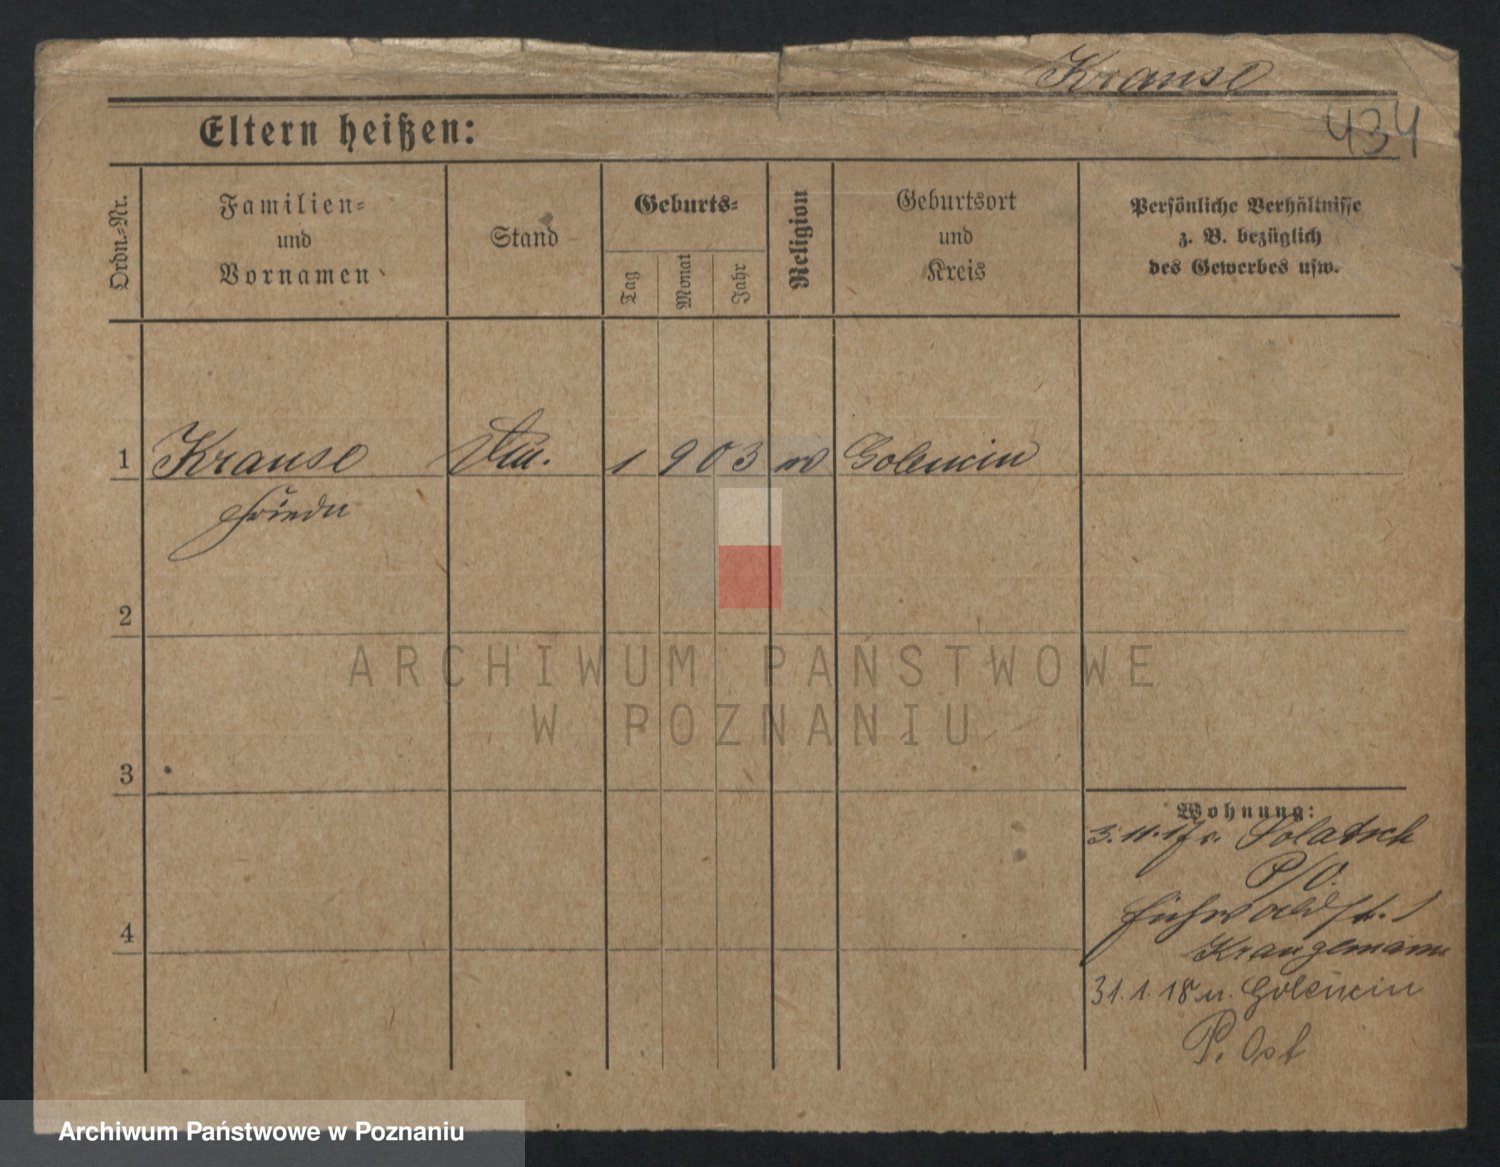 Krause
434
Eltern heißen:
Ordn.-Nr.
Familien-
und
Vornamen
Stand
Geburts-
Tag
Monat
Jahr
Religion
Geburtsort
und
Kreis
Persönliche Verhältnisse
z. B. bezüglich
des Gewerbes usw.
1 Krause 1 9 03 Golencin
2
3
4
Wohnung:
3.11.17 v. Solatsch
P/O.
Eichwaldst. 1
31.1.18 n. Golencin
P. Ost
ARCHIWUM PAŃSTWOWE
W POZNANIU
Archiwum Państwowe w Poznaniu